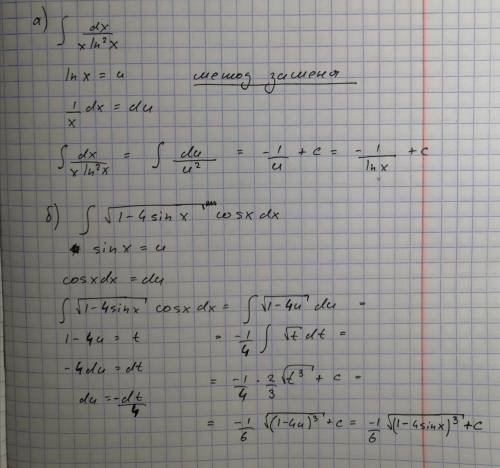 а) ∫ dx / (x ln²x)
ln x = u метод замена
1/x dx = du
∫ dx / (x ln²x) = ∫ du / u² = -1/u + c = -1/ln x + c
б) ∫ √(1-4sin x) cosx dx
sin x = u
cosxdx = du
∫ √(1-4sinx) cosx dx = ∫ √(1-4u) du =
1-4u = t = -1/4 ∫ √t dt =
-4du = dt
= -1/4 · 2/3 √t³ + c =
du = -dt/4
= -1/6 √(1-4u)³ + c = -1/6 √(1-4sinx)³ + c